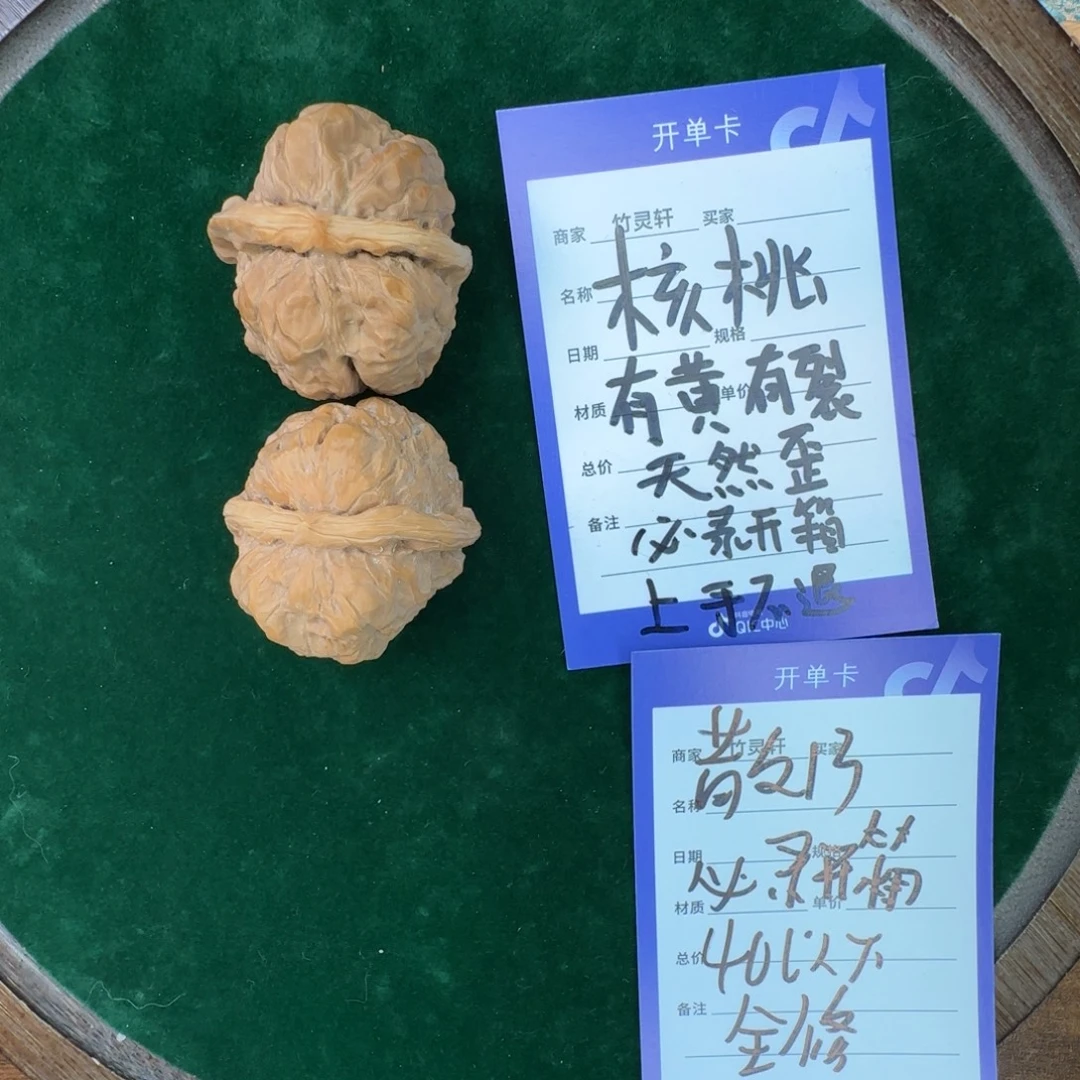 开单卡
商家 竹灵轩 买家
名称 核桃
日期 规格
材质 有黄有裂 单价
总价 天然歪
备注 必录开箱
上手不退
中心
开单卡
商家 竹灵轩 买家
名称
日期 规格
必录开箱
材质 单价
总价 40以下
备注
全修